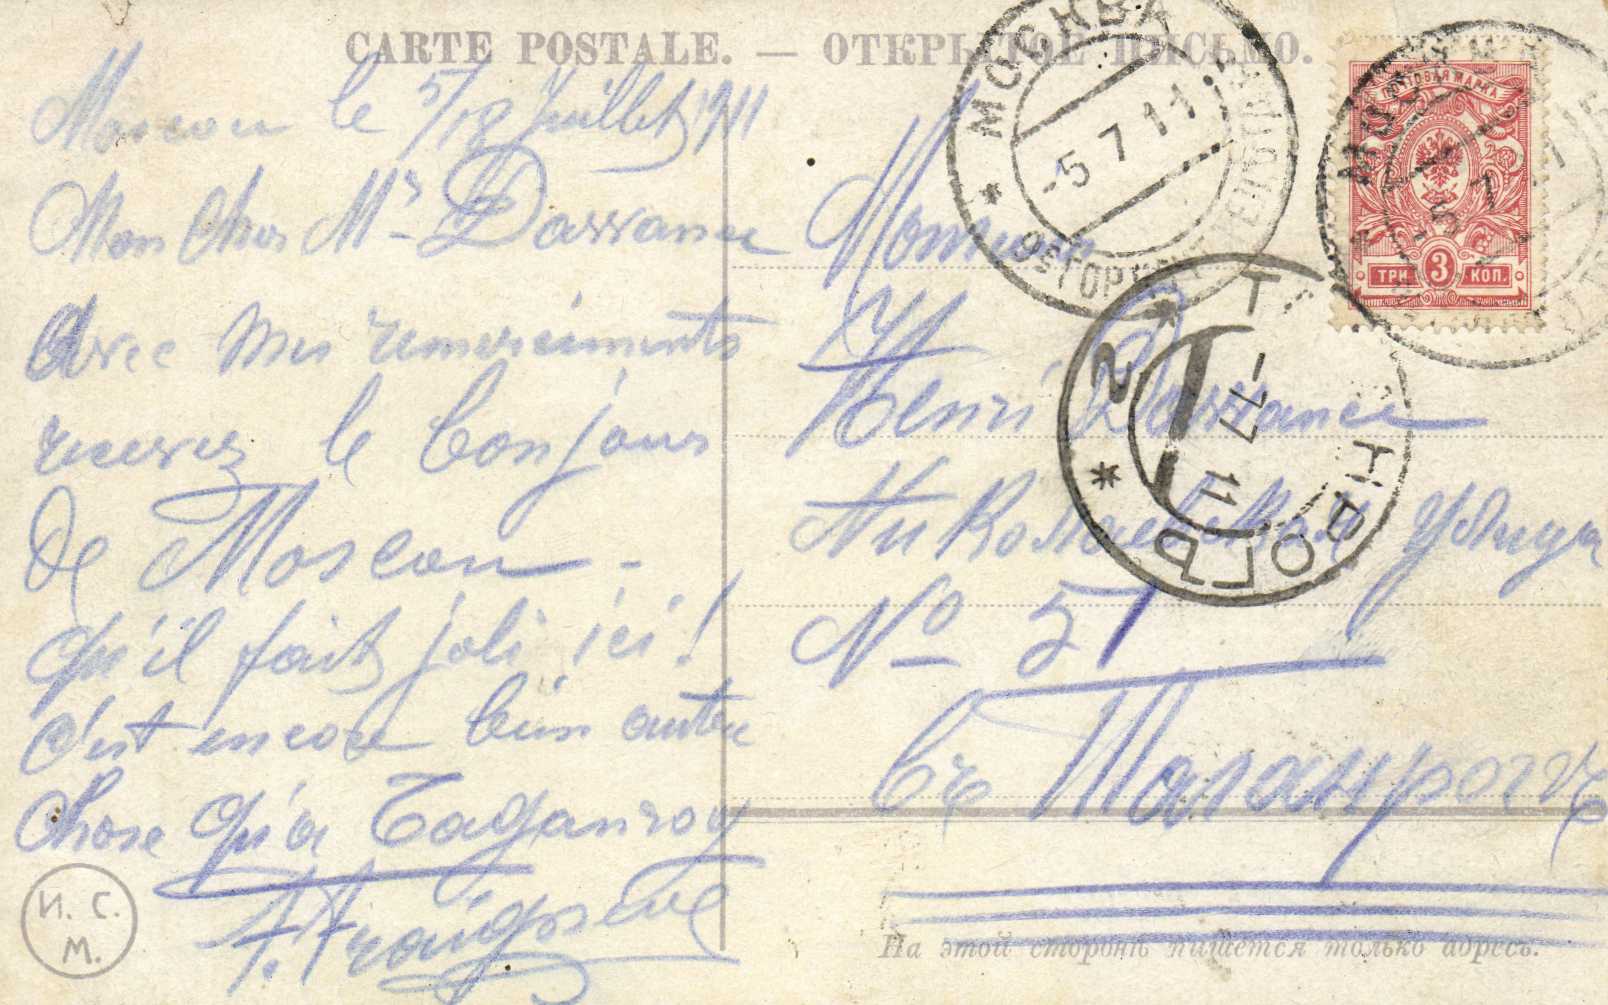 CARTE POSTALE. — ОТКРЫТОЕ ПИСЬМО.
Moscou le 5/18 Juillet 1911
Mon cher Mr Dorrance
Avec mes remerciments
recevez le bonjour
de Moscou -
qu'il fait joli ici!
c'est encore bien autre
chose qu'à Taganrog
И. С.
М.
МОСКВА
-5.7.11
ПОЧТОВАЯ МАРКА
ТРИ 3 КОП.
-5 7 11
Monsieur
H
Henri Dorrance
Николаевская улица
No 51
въ Таганрогъ
2 Т НРОГЪ
-7 7 11
На этой сторонѣ пишется только адресъ.